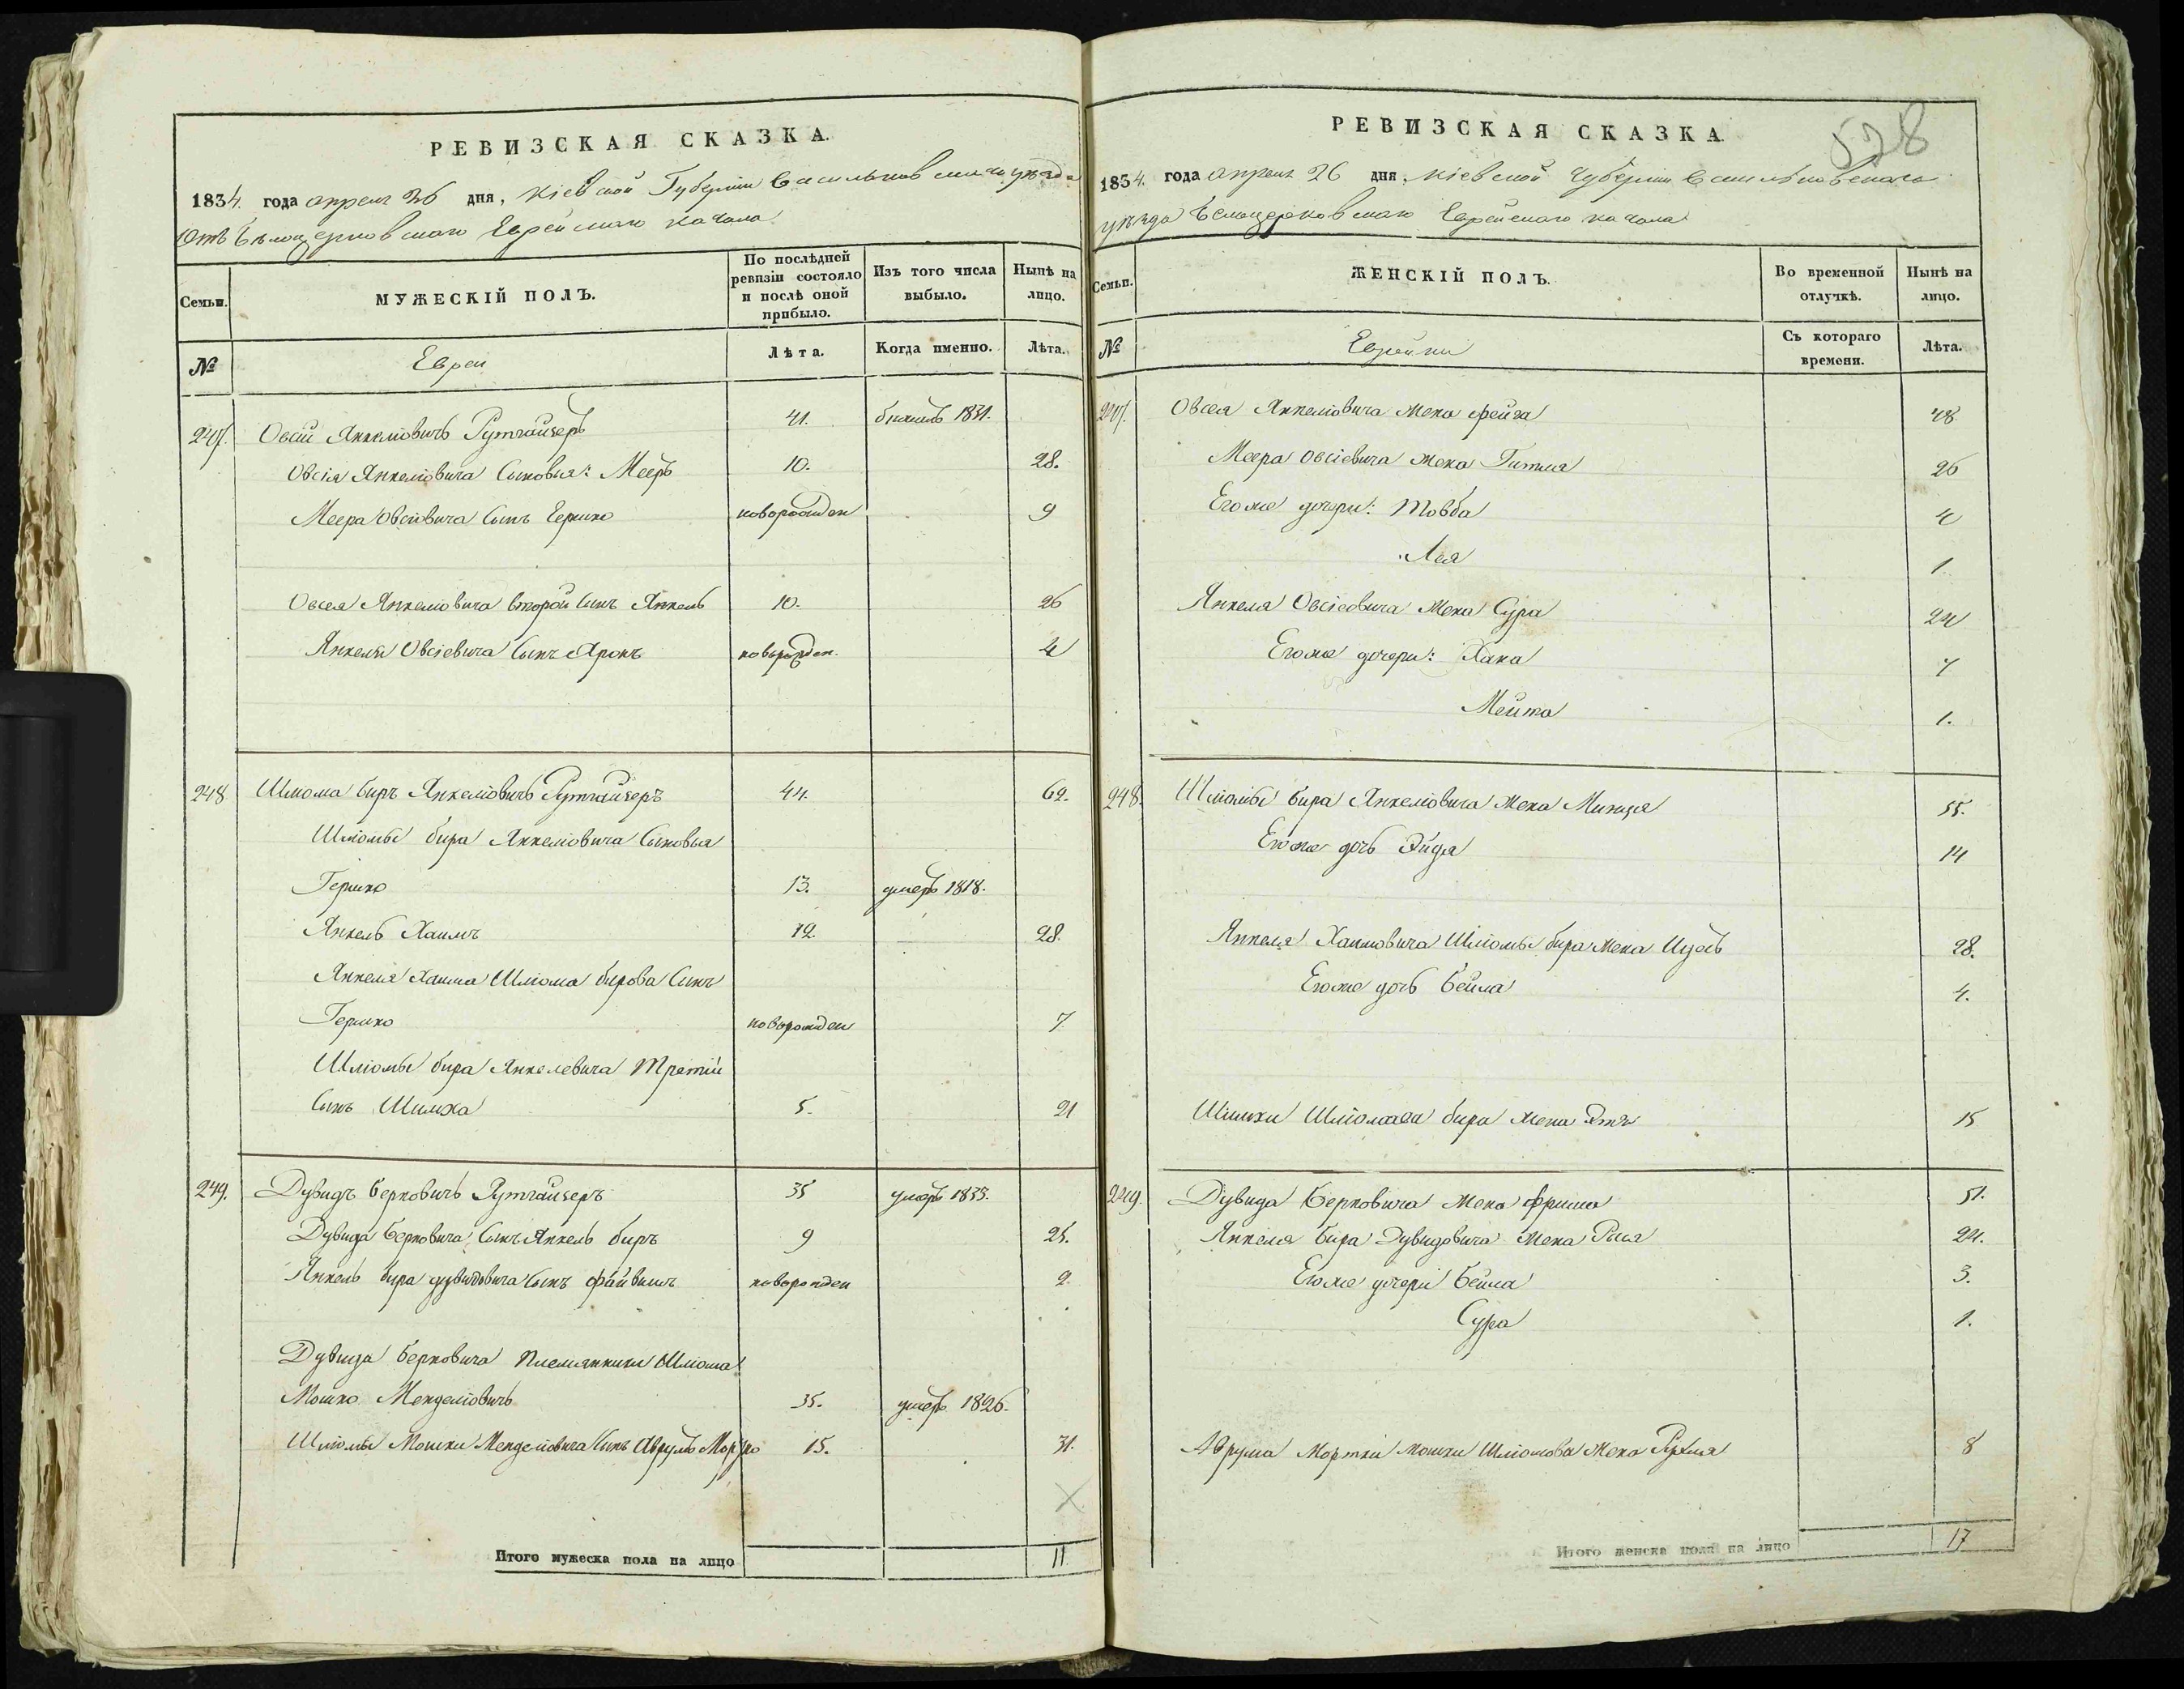 РЕВИЗСКАЯ СКАЗКА.
1834. года апреля 26 дня, Кіевской Губерніи Васильковскаго уезда
Отъ Белоцерковскаго Еврейскаго кагала
Семьи. МУЖЕСКІЙ ПОЛЪ. По послѣдней ревизіи состояло и послѣ оной прибыло. Изъ того числа выбыло. Нынѣ на лицо.
№ Евреи Лѣта. Когда именно. Лѣта.
247. Овсій Янкеліовичъ 41. 1831.
Овсія Янкеліовича Сыновья: Мееръ 10. 28.
Меера Овсіовича Сынъ Гершко новорожден 9
Овсея Янкеліовича второй Сынъ Янкель 10. 26
Янкеля Овсіевича Сынъ Аронъ новорожден. 4
248 Шліома Биръ Янкеліовичъ 44. 62.
Шліомы Бира Янкеліовича Сыновья
Гершко 13. умеръ 1818.
Янкель Хаимъ 12. 28.
Янкеля Хаима Шліома бирова Сынъ
Гершко новорожден 7
Шліомы бира Янкелевича третій
Сынъ Шимха 5. 21
249. Дувидъ Берковичъ 35 умеръ 1833.
Дувида Берковича Сынъ Янкель биръ 9 25.
Янкель бира дувидовича Сынъ Файвишъ новорожден 2.
Дувида Берковича племянники Шліома
Мошко Менделіовичъ 35. умеръ 1826.
Шліомы Мошки Менделіовича Сынъ Аврумъ Мортко 15. 31.
Итого мужеска пола на лицо 11.
528
РЕВИЗСКАЯ СКАЗКА
1834. года апреля 26 дня, Кіевской Губерніи Васильковскаго
уезда Белоцерковскаго Еврейскаго кагала
Семьи. ЖЕНСКІЙ ПОЛЪ. Во временной отлучкѣ. Нынѣ на лицо.
№ Еврейки Съ котораго времени. Лѣта.
247. Овсея Янкеліовича жена Фейга 48
Меера Овсіевича жена Гитля 26
Его же дочери: Товба 4
Лея 1
Янкеля Овсіеовича жена Сура 24
Его же дочери: Хана 7
Мейта 1.
248. Шліомы Бира Янкеліовича жена Минця 55.
Его же дочь Эйдя 14
Янкеля Хаимовича Шліомы бира жена 28.
Его же дочь Бейла 4.
Шимхи бира жена 15
249. Дувида Берковича жена Фрима 51.
Янкеля Бира Дувидовича жена Рися 24.
Его же дочери Бейла 3.
Сура 1.
Аврума Мортки Мошки Шліомова жена Рухля 8
Итого женска пола на лицо 17